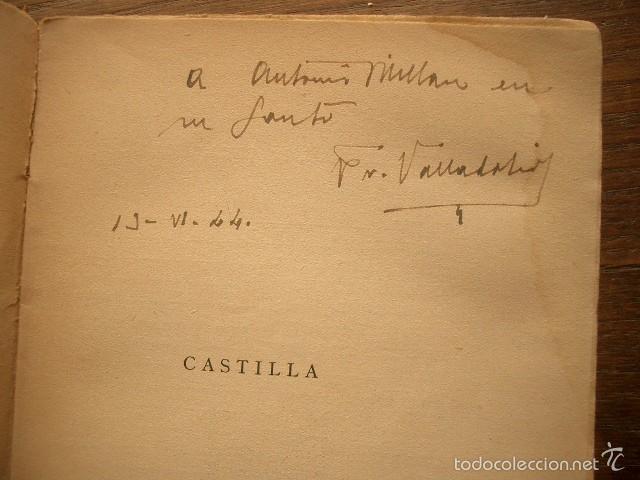 a Antonio Millan en
su Santo
Fr. Valladolid
13-VI-44.
CASTILLA
todocoleccion.net